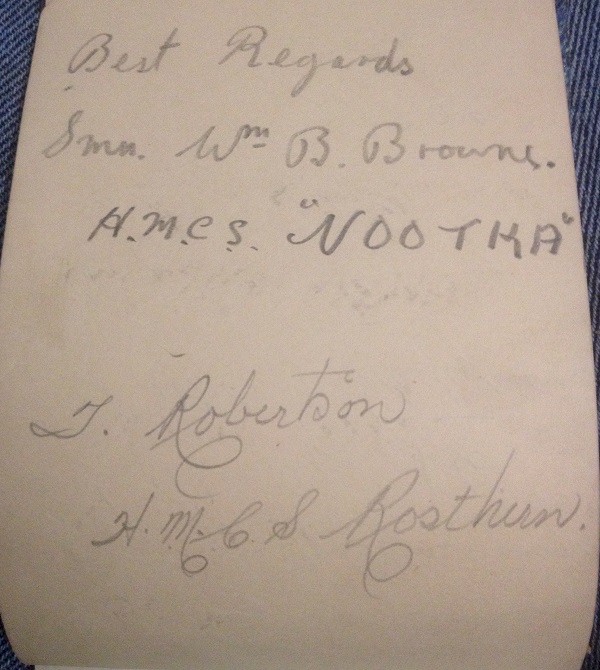 Best Regards
Smn. Wm B. Browne.
H.M.C.S. "NOOTKA"
T. Robertson
H.M.C.S Rosthern.